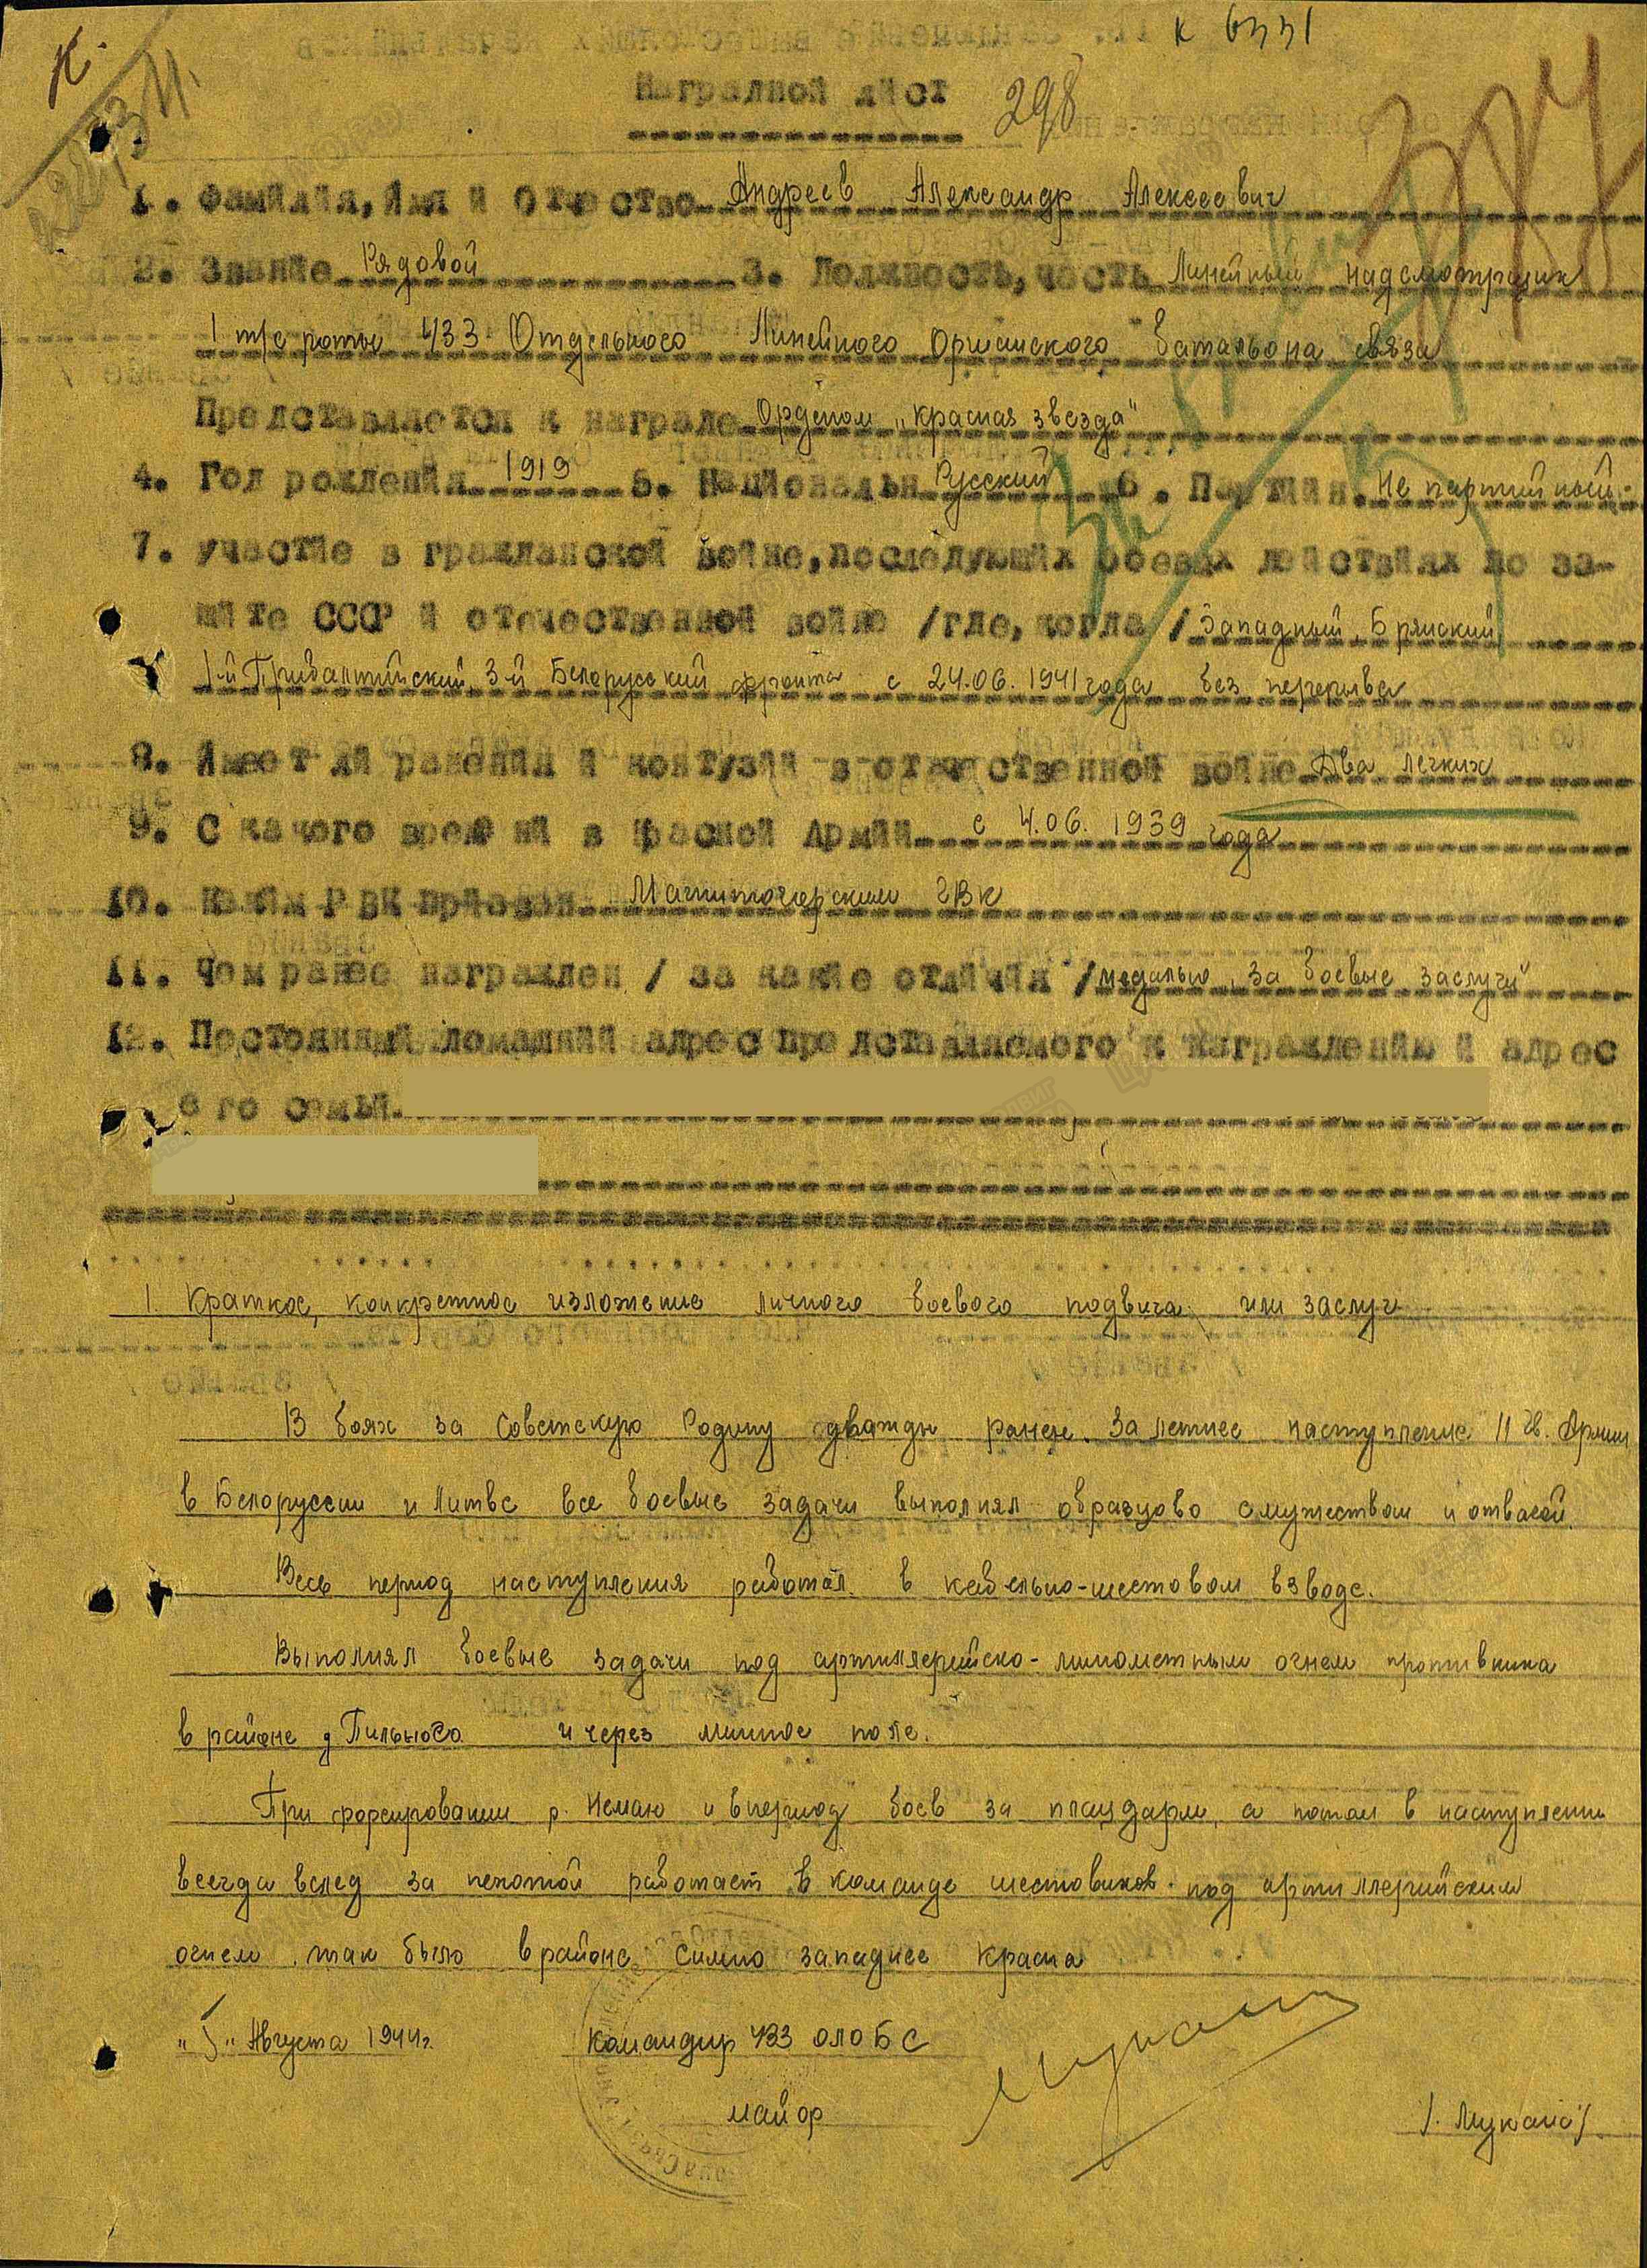 к 6331
Наградной лист
298
1. Фамилия, Имя и Отчество Андреев Александр Алексеевич
2. Звание Рядовой 3. Должность, часть Линейный надсмотрщик
1 т/с роты 433 Отдельного Линейного Оршанского батальона связи
Представляется к награде Орденом "Красная звезда"
4. Год рождения 1919 5. Национальн Русский 6. Партийн. Не партийный
7. участие в гражданской войне, последующих боевых действиях по за-
щите СССР и отечественной войне /где, когда/ Западный, Брянский,
1-й Прибалтийский, 3-й Белорусский фронта с 24.06.1941 года без перерыва
8. Имеет ли ранения и контузии в отечественной войне Два легких
9. С какого времени в Красной Армии с 4.06.1939 года
10. Каким РВК призван Магнитогорским ГВК
11. Чем ранее награжден /за какие отличия/ медалью "за боевые заслуги"
12. Постоянный домашний адрес представляемого к награждению и адрес
его семьи.
1. Краткое, конкретное изложение личного боевого подвига или заслуг
В боях за Советскую Родину дважды ранен. За летнее наступление 11 Гв. Армии
в Белоруссии и Литве все боевые задачи выполнял образцово с мужеством и отвагой.
Весь период наступления работал в кабельно-шестовом взводе.
Выполнял боевые задачи под артиллерийско-минометным огнем противника
в районе д и через минное поле.
При форсировании р. Неман и в период боев за плацдарм, а потом в наступлении
всегда вслед за пехотой работает в команде шестовиков под артиллерийским
огнем, так было в районе Симно западнее Красна
"5" Августа 1944г. Командир 433 ОЛОБС
майор